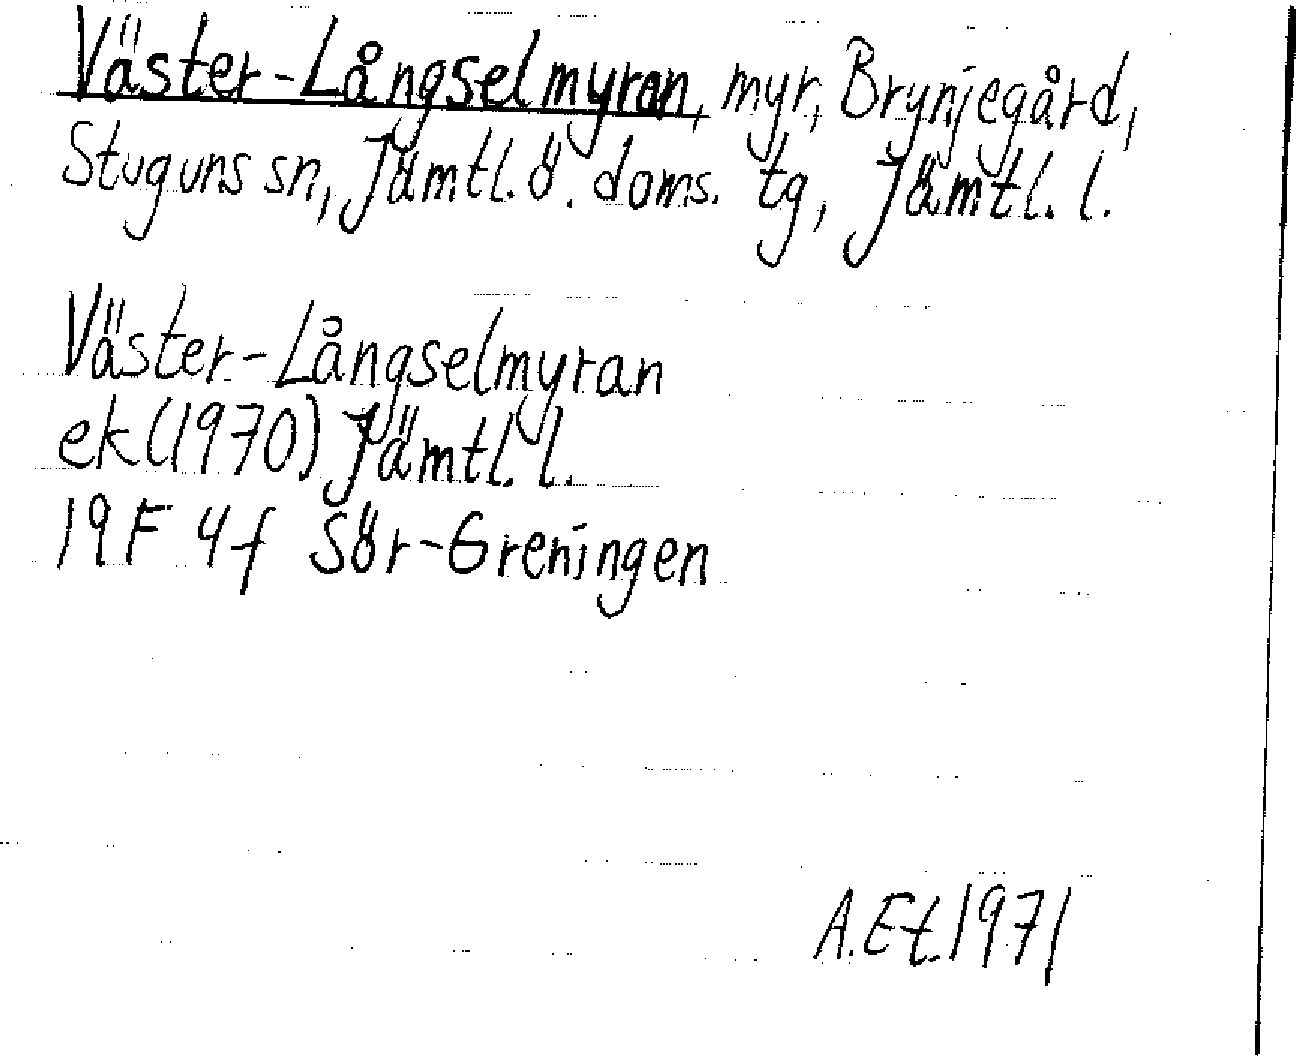 Väster-Långselmyran, myr, Brynjegård,
Stuguns sn, Jämtl. ö. doms. tg, Jämtl. l.
Väster-Långselmyran
ek (1970) Jämtl. l.
19F 4f Sör-Greningen
A.Et.1971